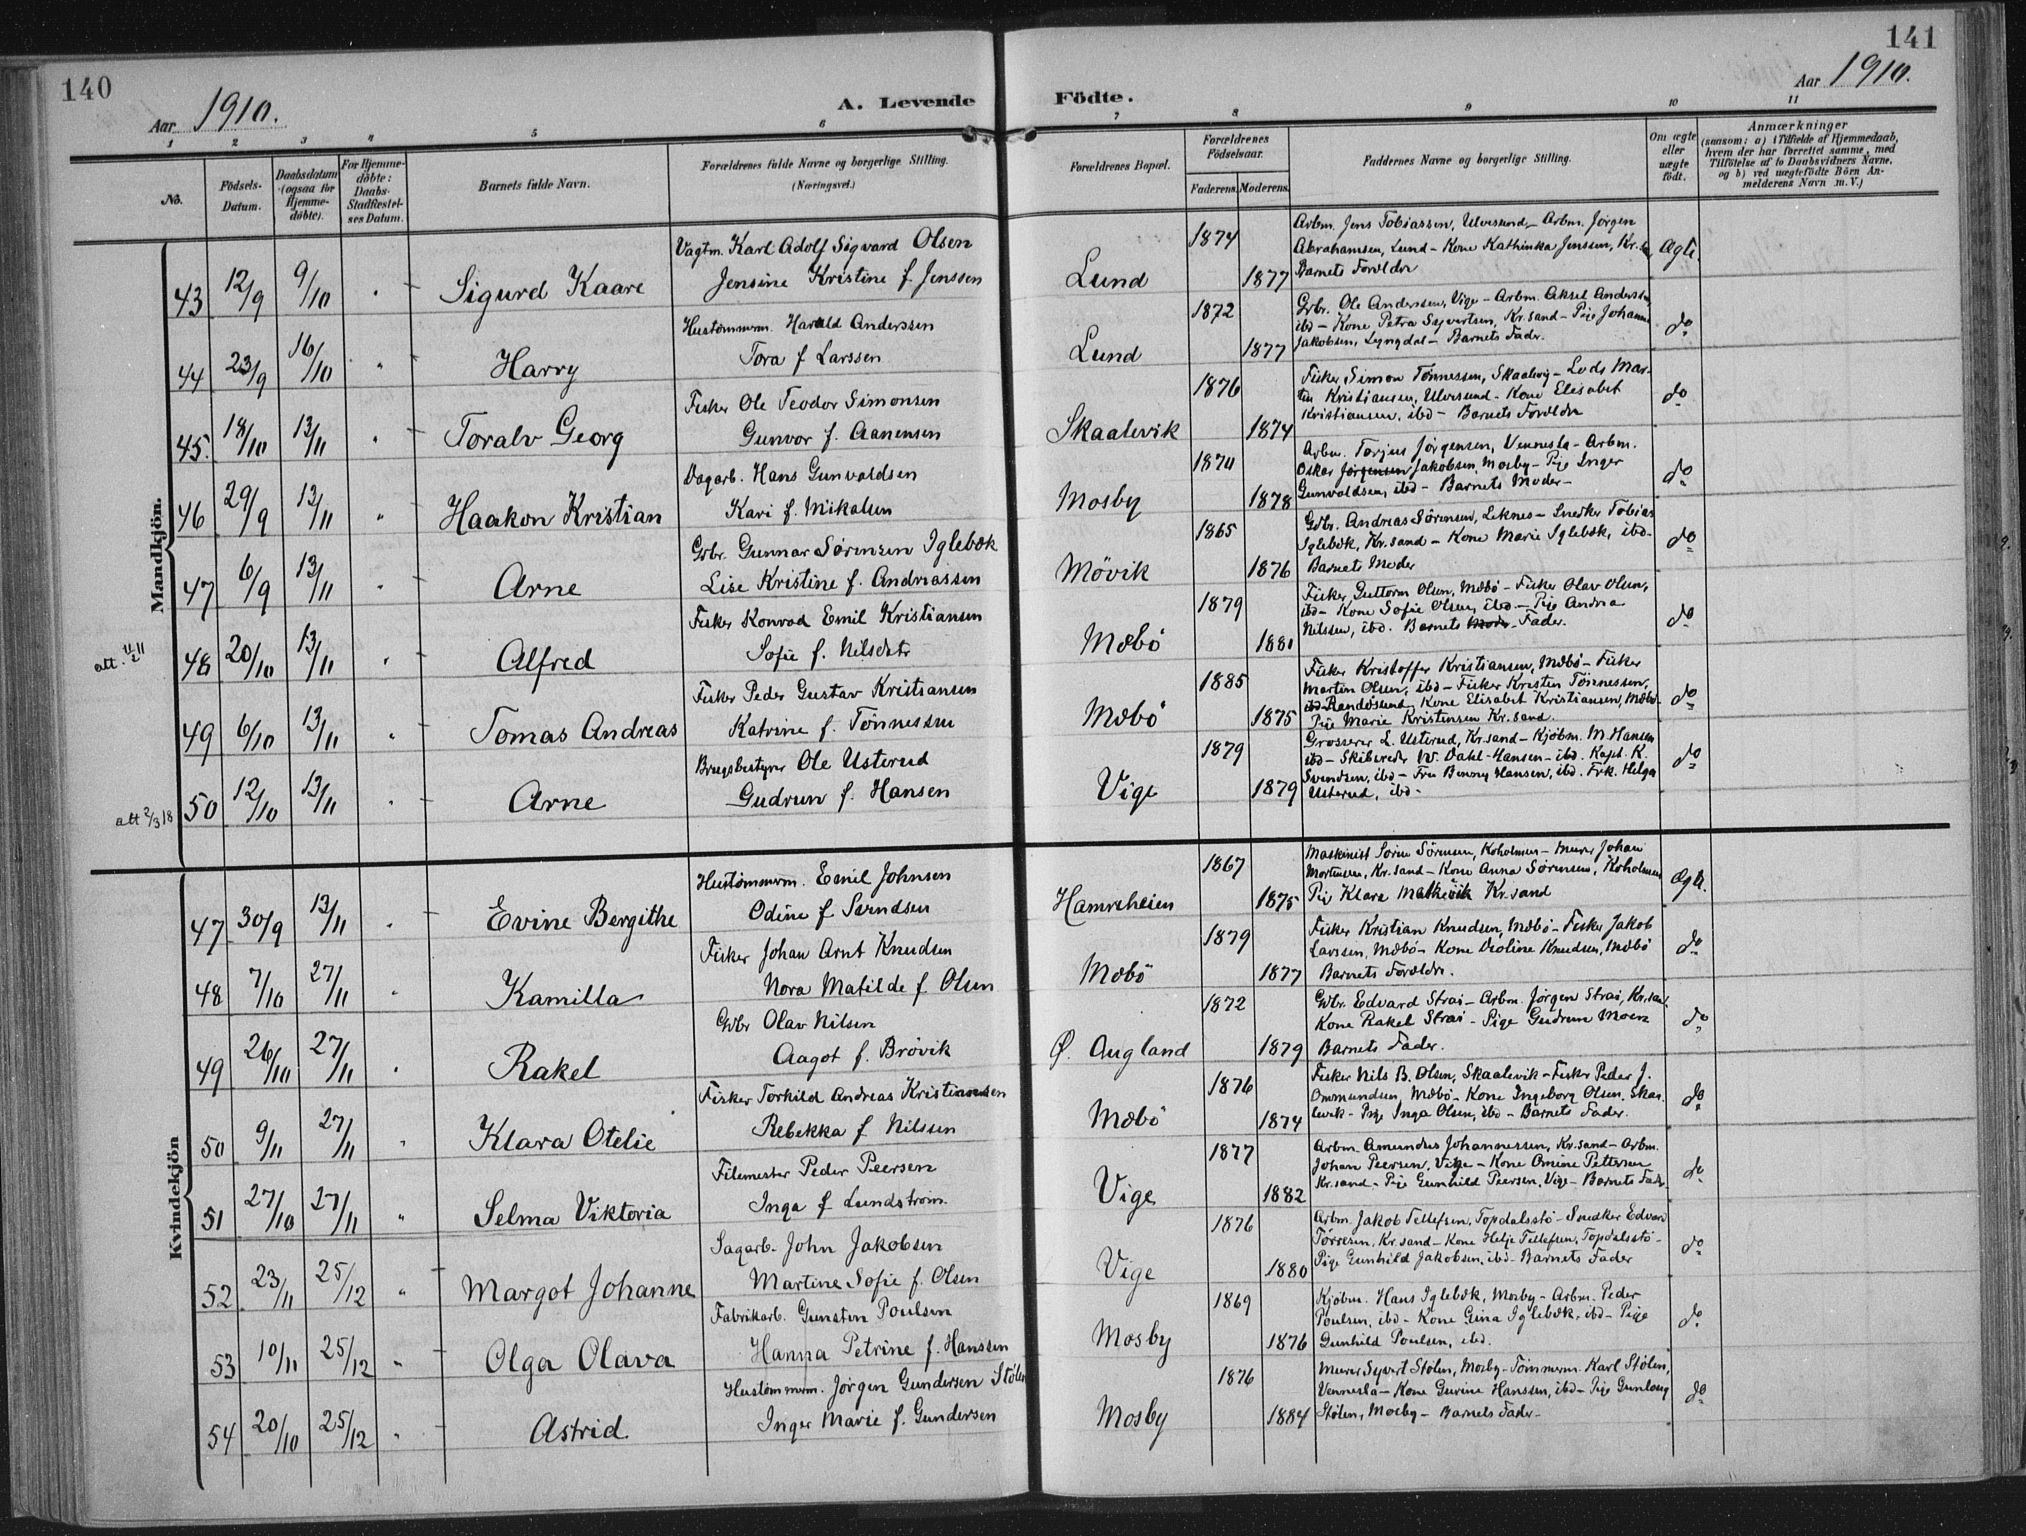 140
Aar 1910.
A. Levende
1 2 3 4 5 6
No.
Födsels-Datum.
Daabsdatum (ogsaa for Hjemmedöbte).
For Hjemmedöbte: Daabs-Stadfæstelses Datum.
Barnets fulde Navn.
Forældrenes fulde Navne og borgerlige Stilling.
(Næringsvei.)
Mandkjön.
Vagtm. Karl Adolf Sigvard Olsen
43 12/9 9/10 " Sigurd Kaare Jensine Kristine f. Jenssen
Hustømmerm. Harald Anderssen
44 23/9 16/10 " Harry Tora f. Larssen
Fisker Ole Teodor Simonsen
45. 18/10 13/11 " Toralv Georg Gunvor f. Aanensen
Dagarb. Hans Gunvaldsen
46 29/9 13/11 " Haakon Kristian Kari f. Mikalsen
Gbr. Gunnar Sørensen Iglebæk
47 6/9 13/11 " Arne Lise Kristine f. Andreassen
Fisker Konrad Emil Kristiansen
48 20/10 13/11 " Alfred Sofie f. Nilsdatr
Fisker Peder Gustav Kristiansen
49 6/10 13/11 " Tomas Andreas Katrine f. Tønnessen
Brugsbestyrer Ole Usterud
att 2/3 18 50 12/10 13/11 " Arne Gudrun f. Hansen
Kvindekjön
Hustømmerm. Emil Johnsen
47 30/9 13/11 " Evine Bergithe Odine f. Svendsen
Fisker Johan Arnt Knudsen
48 7/10 27/11 " Kamilla Nora Matilde f. Olsen
Gbr Olav Nilsen
49 26/10 27/11 " Rakel Aagot f. Brøvik
Fisker Torkild Andreas Kristiansen
50 9/11 27/11 " Klara Otelie Rebekka f. Nilsen
Filemester Peder Peersen
51 27/10 27/11 " Selma Viktoria Inga f. Lundstrøm.
Sagarb. John Jakobsen
52 23/11 25/12 " Margot Johanne Martine Sofie f. Olsen
Fabrikarb. Gunsten Poulsen
53 10/11 25/12 " Olga Olava Hanna Petrine f. Hanssen
Hustømmerm. Jørgen Gundersen Stølen
54 20/10 25/12 " Astrid Inger Marie f. Gundersen
141
Aar 1910.
Födte.
7 8 9 10 11
Forældrenes Bopæl.
Forældrenes Födselsaar.
Faderens. Moderens.
Faddernes Navne og borgerlige Stilling.
Om ægte eller uægte födt.
Anmærkninger
(saasom: a) i Tilfælde af Hjemmedaab,
hvem der har forrettet samme, med
Tilföielse af to Daabsvidners Navne,
og b) ved uægtefödte Börn Anmelderens Navn m. V.)
Lund 1874 1877 Ægte.
Arbm. Jens Tobiassen, Ulvesund - Arbm. Jörgen
Abrahamsen, Lund - Kone Kathinka Jenssen, Kr.
Barnets Forældre
Lund 1872 1877 do
Gbr. Ole Anderssen, Vige - Arbm. Aksel Anderssen
ibd - Kone Petra Syvertsen, Kr.sand - Pige Johanne
Jakobsen, Lyngdal - Barnets Fader.
Skaalevik 1876 1874 do
Fisker Simon Tønnessen, Skaalevig - Lods Martin
Kristiansen, Ulvesund - Kone Elisabet
Kristiansen, ibd - Barnets Forældre
Mosby 1870 1878 do
Arbm. Torjus Jörgensen, Vennesla - Arbm.
Oskar Jörgensen Jakobsen, Mosby - Pige Inger
Gunvaldsen, ibd - Barnets Moder -
Mövik 1865 1876 do
Gbr. Andreas Sørensen, Leknes - Snedker Tobias
Iglebæk, Kr.sand - Kone Marie Iglebæk, ibd -
Barnets Moder
Mæbö 1879 1881 do
Fisker Guttorm Olsen, Mæbö - Fisker Olav Olsen,
ibd - Kone Sofie Olsen, ibd - Pige Andrea
Nilssen, ibd. Barnets Moder - Fader.
Mæbö 1885 1875 do
Fisker Kristoffer Kristiansen, Mæbö - Fisker
Martin Olsen, ibd - Fisker Kristen Tønnessen,
ibd Randøsund, Kone Elisabet Kristiansen, Mæbö -
Pige Marie Kristensen Kr.sand.
Vige 1879 1879 do
Grosserer L. Usterud, Kr.sand - Kjøbm. M. Hansen
ibd - Skibsreder W. Dahl-Hansen - ibd. Kapt. K.
Svendsen, ibd - Fru Benny Hansen, ibd. Frk. Helga
Usterud, ibd -
Hamreheien 1867 1875 Ægte.
Maskinist Sørine Sörensen, Koholmen - Murer Johan
Mortensen, Kr.sand - Kone Anna Sørensen, Koholmen
Pige Klara Kr.sand
Mæbö 1879 1877 do
Fisker Kristian Knudsen, Mæbö - Fisker Jakob
Larssen, Mæbö - Kone Oline Knudsen, Mæbö
Barnets Forældre.
Ø. Augland 1872 1879 do
Gbr. Edvard Strai - Arbm. Jörgen Strai, Kr.sand
Kone Rakel Strai - Pige Gudrun Moen
Barnets Fader.
Mæbö 1876 1874 do
Fisker Nils B. Olsen, Skaalevik - Fisker Peder J.
Ommundsen, Mæbö - Kone Ingeborg Olsen, Skaalevik - Pige Inga Olsen, ibd - Barnets Fader.
Vige 1877 1882 do
Arbm. Amundus Johannessen, Kr.sand - Arbm.
Johan Peersen, Vige - Kone Omine Pettersen
Kr.sand - Pige Gunhild Peersen, Vige - Barnets Fader
Vige 1876 1880 do
Arbm. Jakob Tellefsen, Topdalsstö - Snedker Edvard
Törresen, Kr.sand - Kone Helje Tellefsen, Topdalsstö -
Pige Gunhild Jakobsen, ibd - Barnets Fader
Mosby 1869 1876 do
Kjöbm. Hans Iglebæk, Mosby - Arbm. Peder
Poulsen, ibd - Kone Gina Iglebæk, ibd - Pige
Gunhild Poulsen, ibd.
Mosby 1876 1884 do
Murer Syvert Stølen, Mosby - Tømmerm. Karl Stølen,
Vennesla - Kone Gurine Hanssen, ibd - Pige Gunlaug
Stølen, Mosby - Barnets Fader -